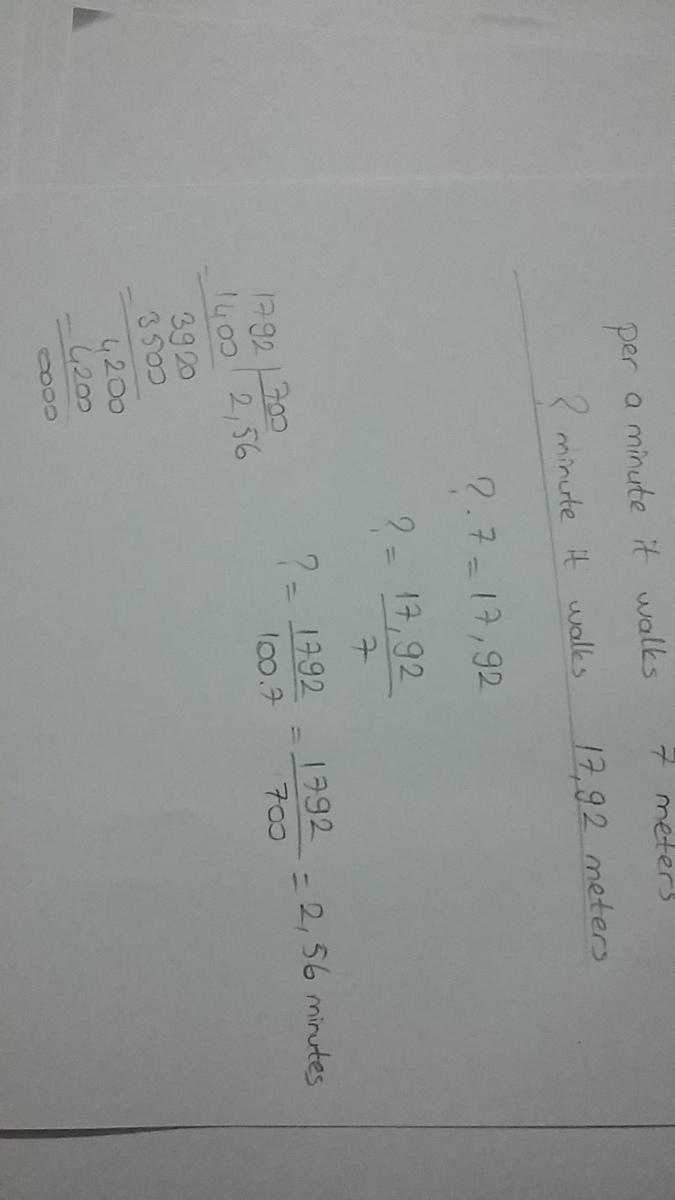 per a minute it walks 7 meters
? minute it walks 17,92 meters
? . 7 = 17,92
? = 17,92 / 7
? = 1792 / 100.7 = 1792 / 700 = 2,56 minutes
1792 | 700
1400 | 2,56
3920
3500
4200
4200
0000